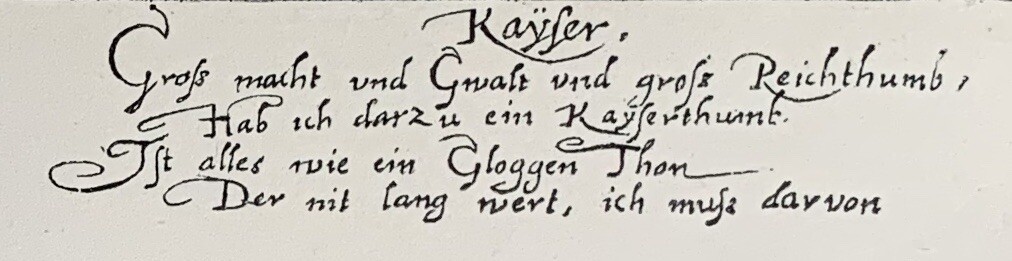 Kaÿser.
Groß macht vnd Gwalt vnd groß Reichthumb,
Hab ich darzu ein Kaÿserthumb.
Ist alles wie ein Gloggen Thon
Der nit lang wert, ich muß darvon